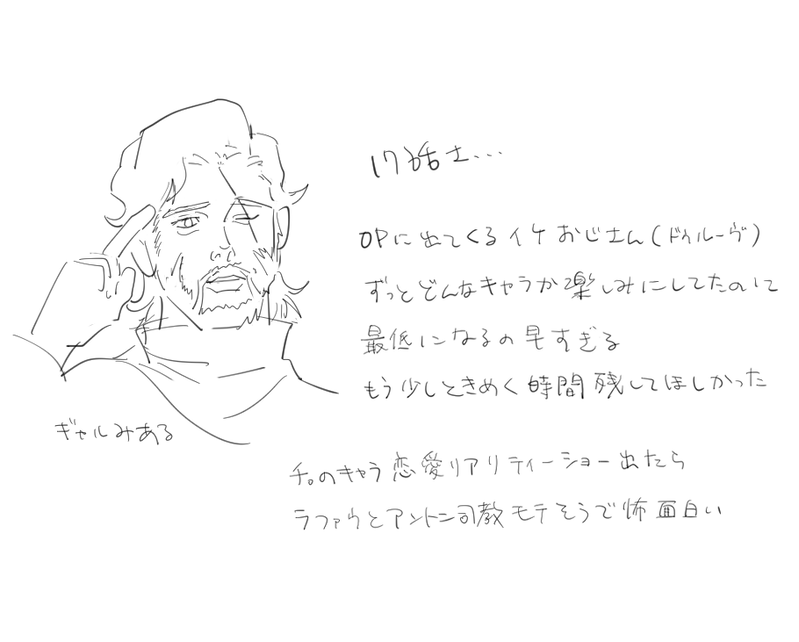 17話さ...
OPに出てくるイケおじさん(ドゥルーヴ)
ずっとどんなキャラか楽しみにしてたのにて
最低になるの早すぎる
もう少しときめく時間残してほしかった
ギャルみある
チ。のキャラ恋愛リアリティーショー出たら
ラファウとアントニ司教モテそうで怖面白い